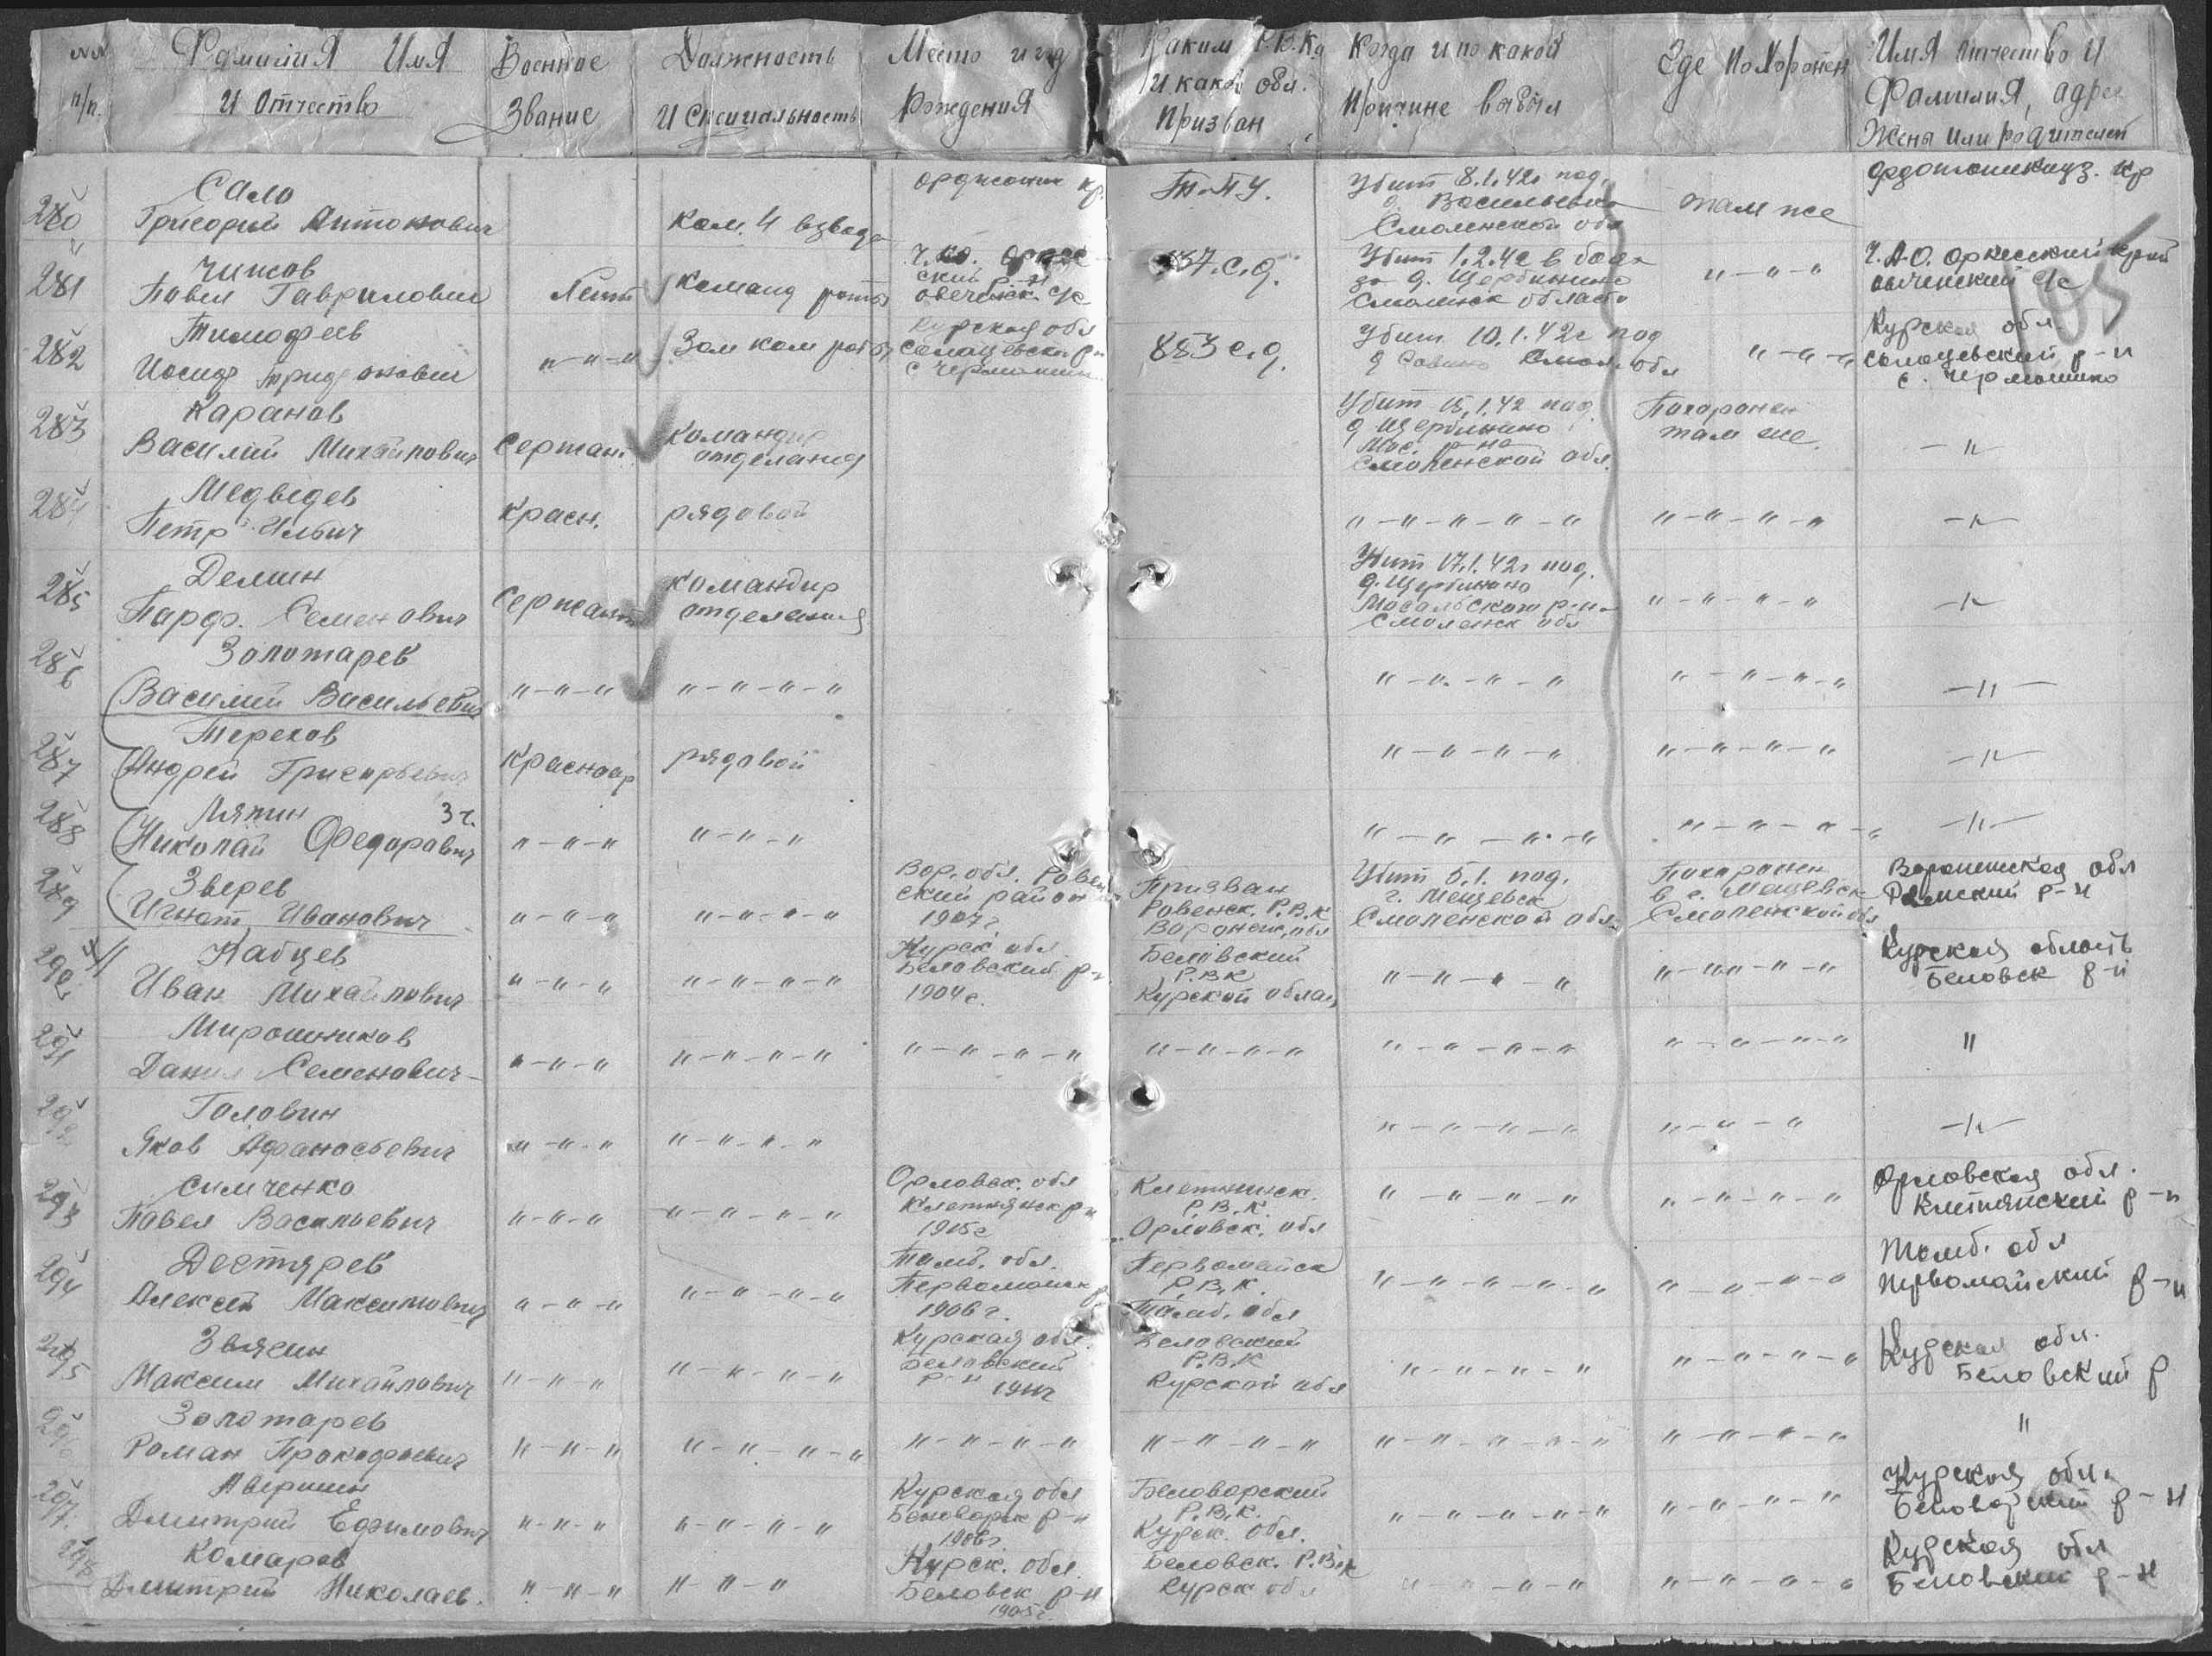 №№ Фамилия Имя Военное Должность Место и год Каким Р.В.К. Когда и по какой Где Похоронен Имя отчество и
п/п. и отчество Звание и специальность Рождения и какой обл. Причине выбыл Фамилия, адрес
Призван Жены или родителей
280 Сало
Григорий Антонович Ком. 4 взвода кр. Убит 8.1.42г под там же
Смоленской обл
281 Чижов
Павел Гаврилович Лейт Команд роты с/с с.д. Убит 1.2.42 в боях " - " - "
за д. Щербинино с/с
282 Тимофеев Курская обл Убит 10.1.42г под Курская обл.
Иосиф " - " - " Зам ком роты 883 с.д. д обл " - " - " р-н
283 Каранов Убит 15.1.42 под Похоронен
Василий Михайлович Сержан. Командир д Щербинино там же - " -
отделания Смоленской обл.
284 Медведев
Петр Ильич Красн. рядовой " - " - " - " - " " - " - " - " - " -
285 Демин Убит 17.1.42г под
Парф. Семенович Сержант командир д. Щербинино " - " - " - " - " -
отделения Мосальского р-на
Смоленск обл
286 Золотарев
Василий Васильевич " - " - " " - " - " - " " - " - " - " " - " - " - " - " -
287 Терехов
Андрей Григорьевич Красноар рядовой " - " - " - " " - " - " - " - " -
288 Ляпин 3 г.
Николай Федаравич " - " - " " - " - " " - " - " - " " - " - " - " - " -
289 Зверев Вор. обл. Ровен Призван Убит 5.1. под. Похоронен Воронежская обл
Игнат Иванович " - " - " " - " - " - " ский район Ровенск. Р.В.К г. Мещевск в г. Мещевск р-н
1907г Воронеж. обл Смоленской обл. Смоленской обл
290 Набцев Курск. обл. Беловский Курская область
Иван Михайлович " - " - " " - " - " - " Беловский р-н Р.В.К " - " - " - " " - " - " - " Беловск р-н
1904г. Курской област
291 Мирошников
Данил Семенович " - " - " " - " - " - " " - " - " - " " - " - " - " " - " - " - " - " " - " - " - " "
292 Головин
Яков Афанасьевич " - " - " " - " - " - " " - " - " - " - " " - " - " - " - " -
293 Симченко Орловск. обл Клетнинск. Орловская обл.
Павел Васильевич " - " - " " - " - " - " Клетнянск р-н Р.В.К. " - " - " - " - " " - " - " - " Клетнянский р-н
1915г Орловск. обл
294 Дегтярев Тамб. обл. Первомайск Тамб. обл
Алексей Максимович " - " - " " - " - " - " Первомайск р Р.В.К. " - " - " - " - " " - " - " - " Первомайский р-н
1906г. Тамб. обл
295 Звягин Курская обл. Беловский Курская обл.
Максим Михайлович " - " - " " - " - " - " Беловский Р.В.К " - " - " - " " - " - " - " Беловский р
р-н Курской обл
296 Золотарев
Роман Прокофьевич " - " - " " - " - " - " " - " - " - " " - " - " - " " - " - " - " - " " - " - " - " "
297 Авершин Курская обл Курская обл.
Дмитрий Ефимович " - " - " " - " - " - " р-н Р.В.К. " - " - " - " - " " - " - " - " р-н
1906г. Курск. обл.
298 Комаров Курск. обл. Беловск. Р.В.К Курская обл
Дмитрий Николаев. " - " - " " - " - " Беловск р-н Курск обл " - " - " - " " - " - " - " Беловский р-н
1905г.
105